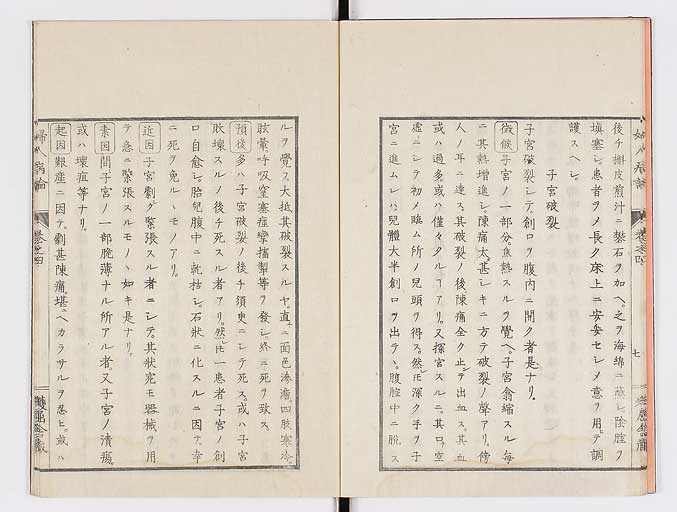 後チ槲皮煎汁ニ礬石ヲ加ヘ之ヲ海綿ニ蘸シ陰腔ヲ
塡塞シ患者ヲメ長ク床上ニ安妥セシメ意ヲ用テ調
護スヘシ
子宮破裂
子宮破裂シテ創口ヲ腹内ニ開ク者是ナリ
徴候子宮ノ一部分焦熱スルヲ覺ヘ子宮翕縮スル毎
ニ其熱増進シ陳痛太甚シキニ方テ破裂ノ聲アリ傍
人ノ耳ニ達ス其破裂ノ後陳痛全ク止ンテ出血ス其血
或ハ過多或ハ僅々タルヿアリ又探宮スルニ其口空
虚ニシテ初メ臨ム所ノ兒頭ヲ得ス然モ深ク手ヲ子
宮ニ進ムレハ兒體大半創口ヲ出テヽ腹腔中ニ脱ス
七
ルヲ覺ス大抵其破裂スルヤ直ニ面色滲濟四肢寒冷
眩暈呼吸窒塞痙攣搐掣等ヲ發シ終ニ死ヲ致ス
預後多ハ子宮破裂ノ後チ須臾ニシテ死ス或ハ子宮
敗壞スルノ後チ死スル者アリ然モ一患者子宮ノ創
口自愈シ胎兒腹中ニ乾枯シ石狀ニ化スルニ因テ幸
ニ死ヲ免ルヽモノアリ
近因子宮劇ク緊張スル者ニシテ其狀宛モ器械ヲ用
テ急ニ緊張スルモノヽ如キ是ナリ
素因間子宮ノ一部脆薄ナル所アル者又子宮ノ潰瘍
或ハ壞疽等ナリ
起因艱産ニ因テ劇甚陳痛堪ヘカラサルヲ忍ヒ或ハ
婦人病論
卷之四